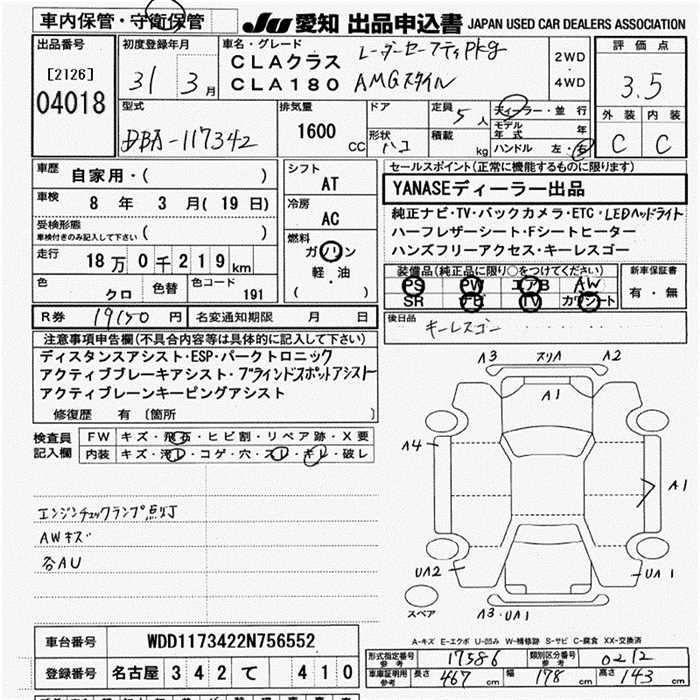 車内保管・守衛保管
JU 愛知 出品申込書 JAPAN USED CAR DEALERS ASSOCIATION
出品番号
[2126]
04018
初度登録年月
31 3月
車名・グレード
CLAクラス レーダーセーフティPkg
CLA180 AMGスタイル
2WD
・
4WD
評価点
3.5
外装 内装
C C
型式
DBA-117342
排気量
1600 CC
ドア
形状 ハコ
定員 5人
積載 kg
ディーラー・並行
モデル年式 年
ハンドル 左・右
車歴 自家用・( )
車検 8年 3月(19日)
受検形態
車検付きのみ記入して下さい ( )
走行 18万0千219km
色 クロ 色替 色コード 191
シフト
AT
冷房
AC
燃料
ガソリン
軽・油
( )
セールスポイント(正常に機能するものに限ります)
YANASEディーラー出品
純正ナビ・TV・バックカメラ・ETC・LEDヘッドライト
ハーフレザーシート・Fシートヒーター
ハンズフリーアクセス・キーレスゴー
装備品(純正品に限り○をつけてください)
PS PW エアB AW
SR ナビ TV カワシート
新車保証書
有・無
R券 19150円 名変通知期限 月 日
後日品
キーレスゴー
注意事項申告欄(不具合内容等は具体的に記入して下さい)
ディスタンスアシスト・ESP・パークトロニック
アクティブブレーキアシスト・ブラインドスポットアシスト
アクティブレーンキーピングアシスト
修復歴 有 〔箇所 〕
検査員記入欄
FW キズ・飛石・ヒビ割・リペア跡・X要
内装 キズ・汚レ・コゲ・穴・スレ・キレ・破レ
エンジンチェックランプ点灯
AWキズ
各AU
A3 スリA A2
A1
A4
A1
UA2
UA1
スペア
A3・UA1
A-キズ E-エクボ U-凹み W-補修跡 S-サビ C-腐食 XX-交換済
車台番号 WDD1173422N756552
登録番号 名古屋 342 て 410
形式指定番号 参考 17586 類別区分番号 参考 0212
車庫証明用 参考 長さ 467cm 幅 178cm 高さ 143cm